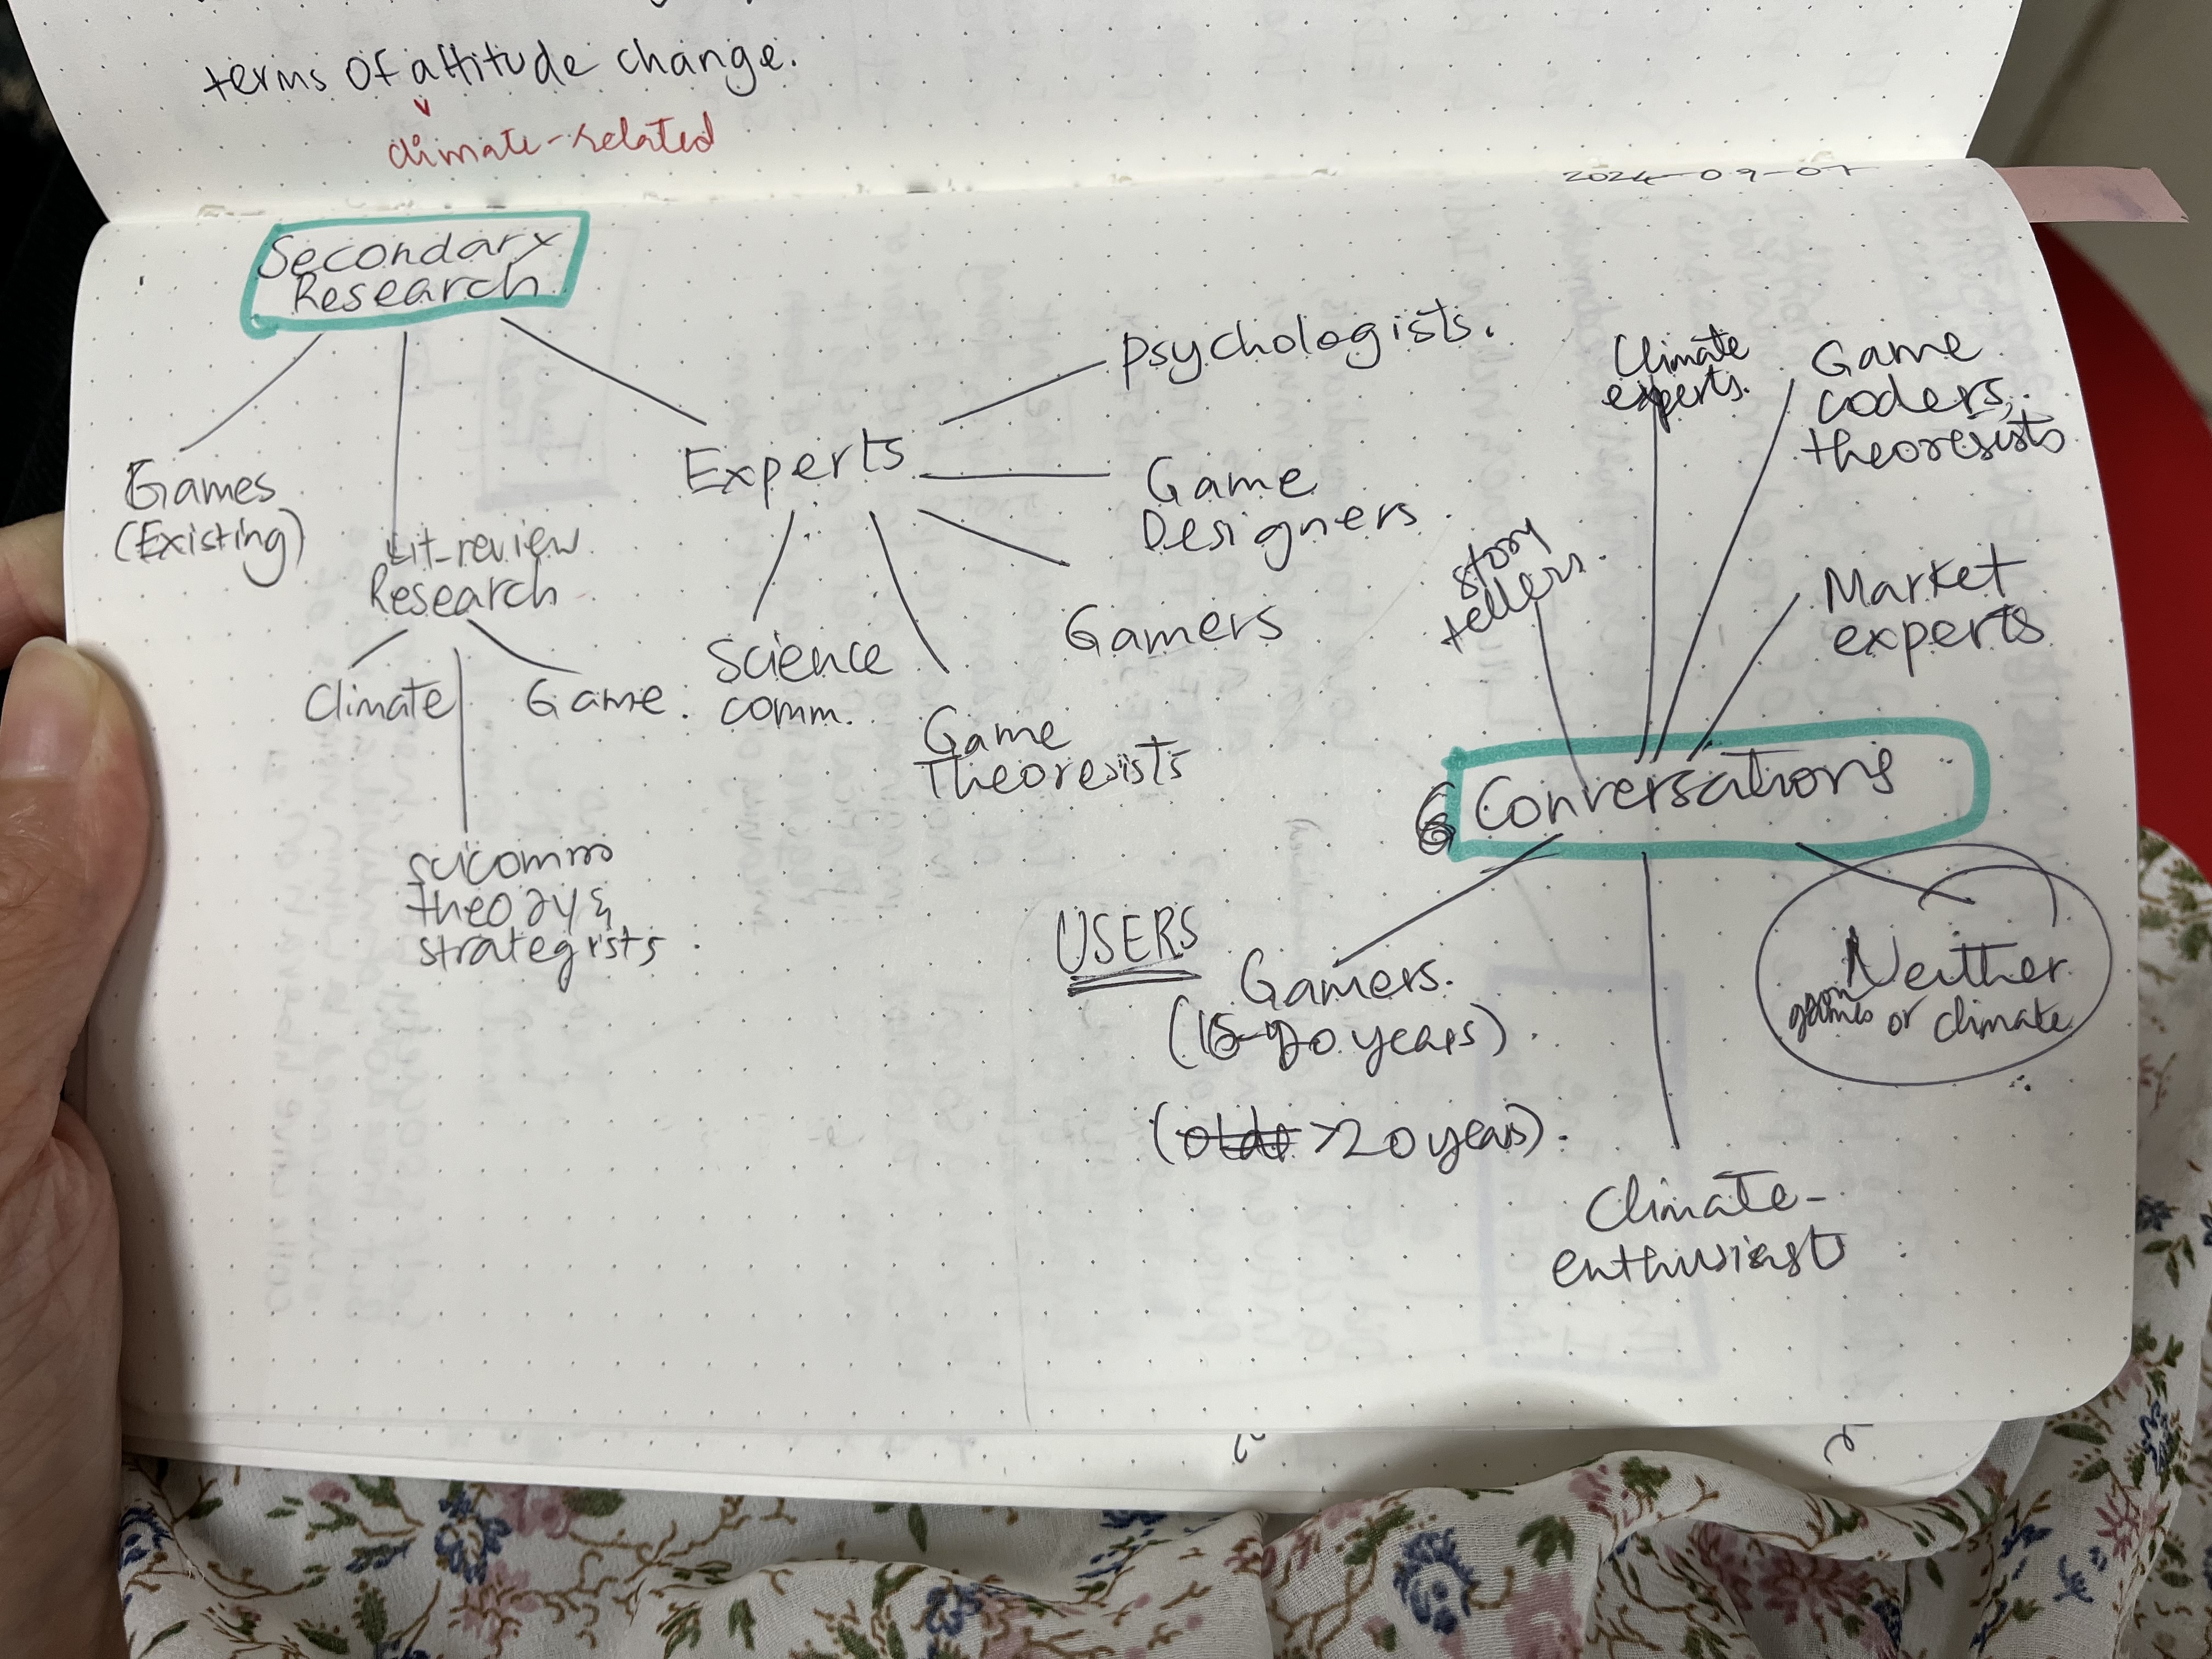 terms of attitude change.
climate-related
2024-09-07
Secondary
Research
Games
(Existing)
Lit-review
Research
Climate
Game.
scicomm
theory &
strategists.
Experts
Psychologists.
Game
Designers.
Gamers
Science
comm.
Game
Theoresists
Climate
experts.
Game
coders,
theoresists
story
tellers.
Market
experts
Conversations
USERS
Gamers.
(15-20 years).
(older >20 years).
Neither
games or climate
Climate-
enthusiasts